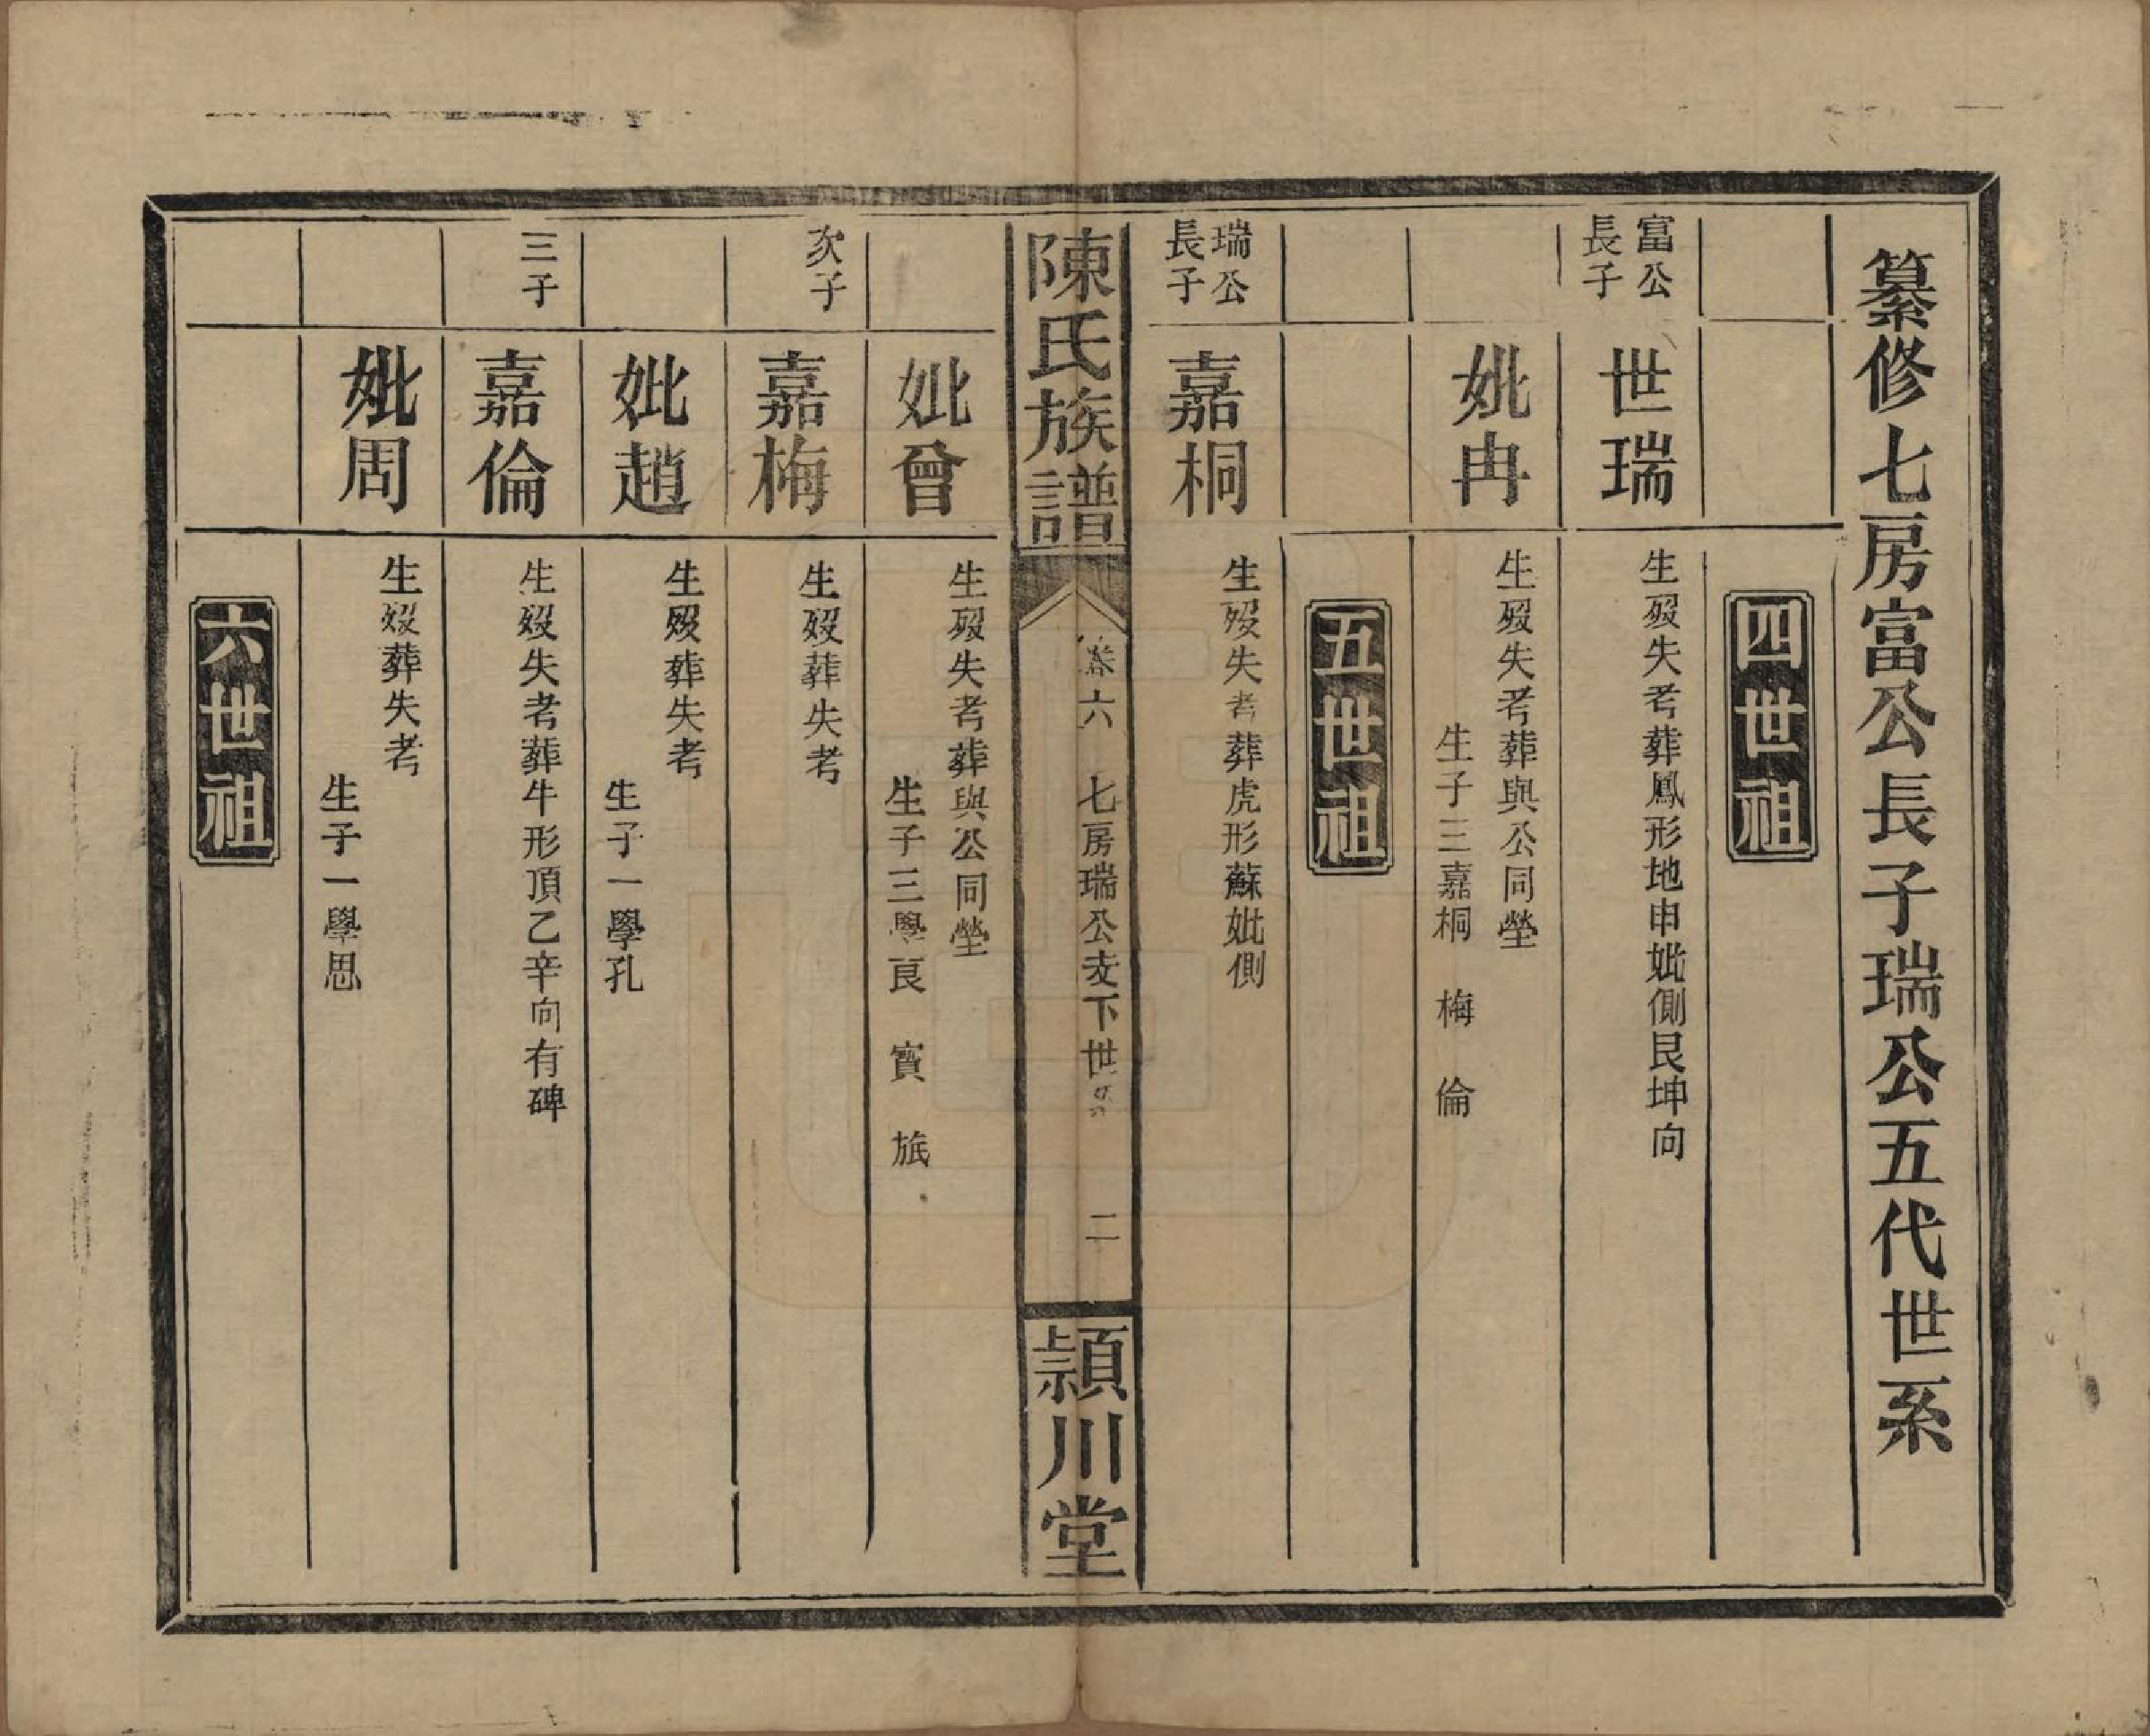 纂修七房富公長子瑞公五代世系
四世祖
富公長子
世瑞
生歿失考葬鳳形地申妣側艮坤向
妣冉
生歿失考葬與公同塋
生子三嘉桐 梅 倫
五世祖
瑞公長子
嘉桐
生歿失考葬虎形蘇妣側
陳氏族譜
卷六 七房瑞公支下世系 二
潁川堂
妣曾
生歿失考葬與公同塋
生子三學良 賓 旅
次子
嘉梅
生歿葬失考
妣趙
生歿葬失考
生子一學孔
三子
嘉倫
生歿失考葬牛形頂乙辛向有碑
妣周
生歿葬失考
生子一學思
六世祖